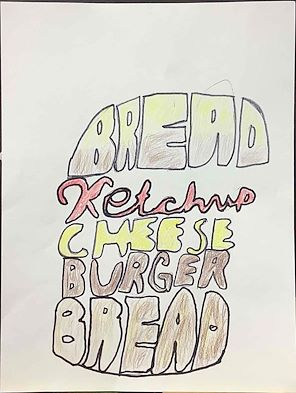 BREAD
Ketchup
CHEESE
BURGER
BREAD